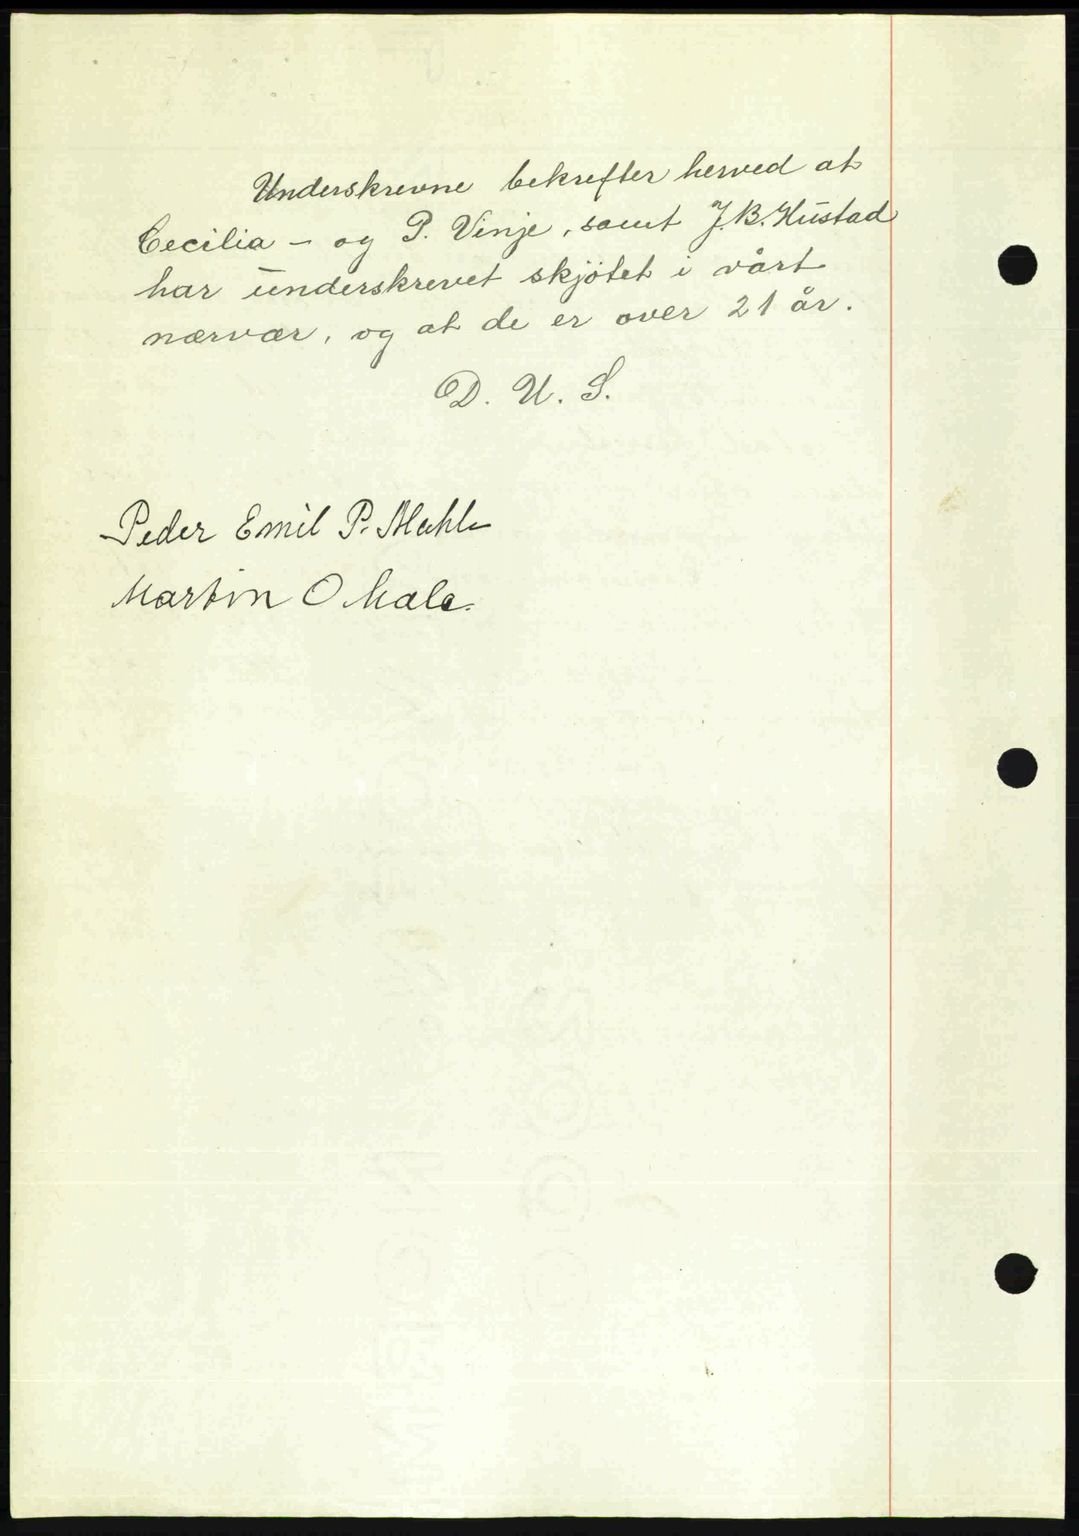 Underskrevne bekrefter herved at
Cecilia - og P. Vinje, samt J.B. Hustad
har underskrevet skjötet i vårt
nærvær, og at de er over 21 år.
D. U. S.
Peder Emil P. Mahle
Martin O Male.